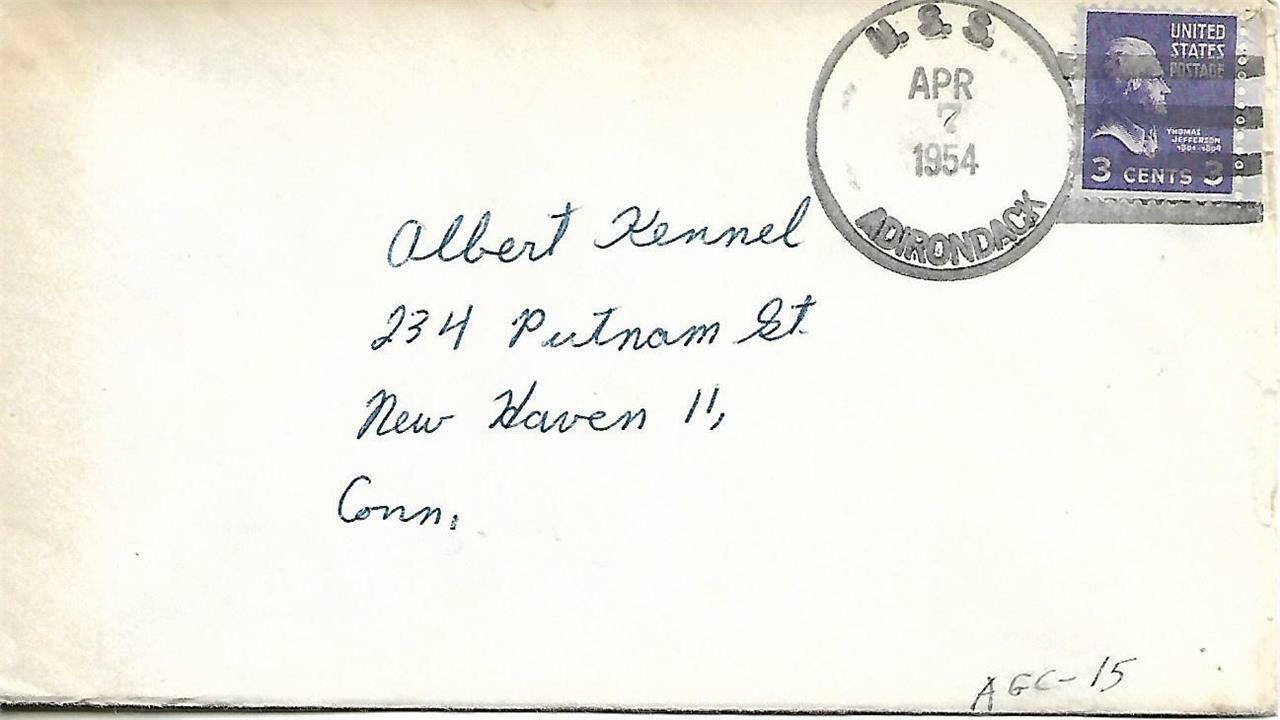 U. S. S.
APR
7
1954
ADIRONDACK
UNITED
STATES
POSTAGE
THOMAS
JEFFERSON
1801-1809
3 CENTS 3
Albert Kennel
234 Putnam St.
New Haven 11,
Conn.
AGC-15